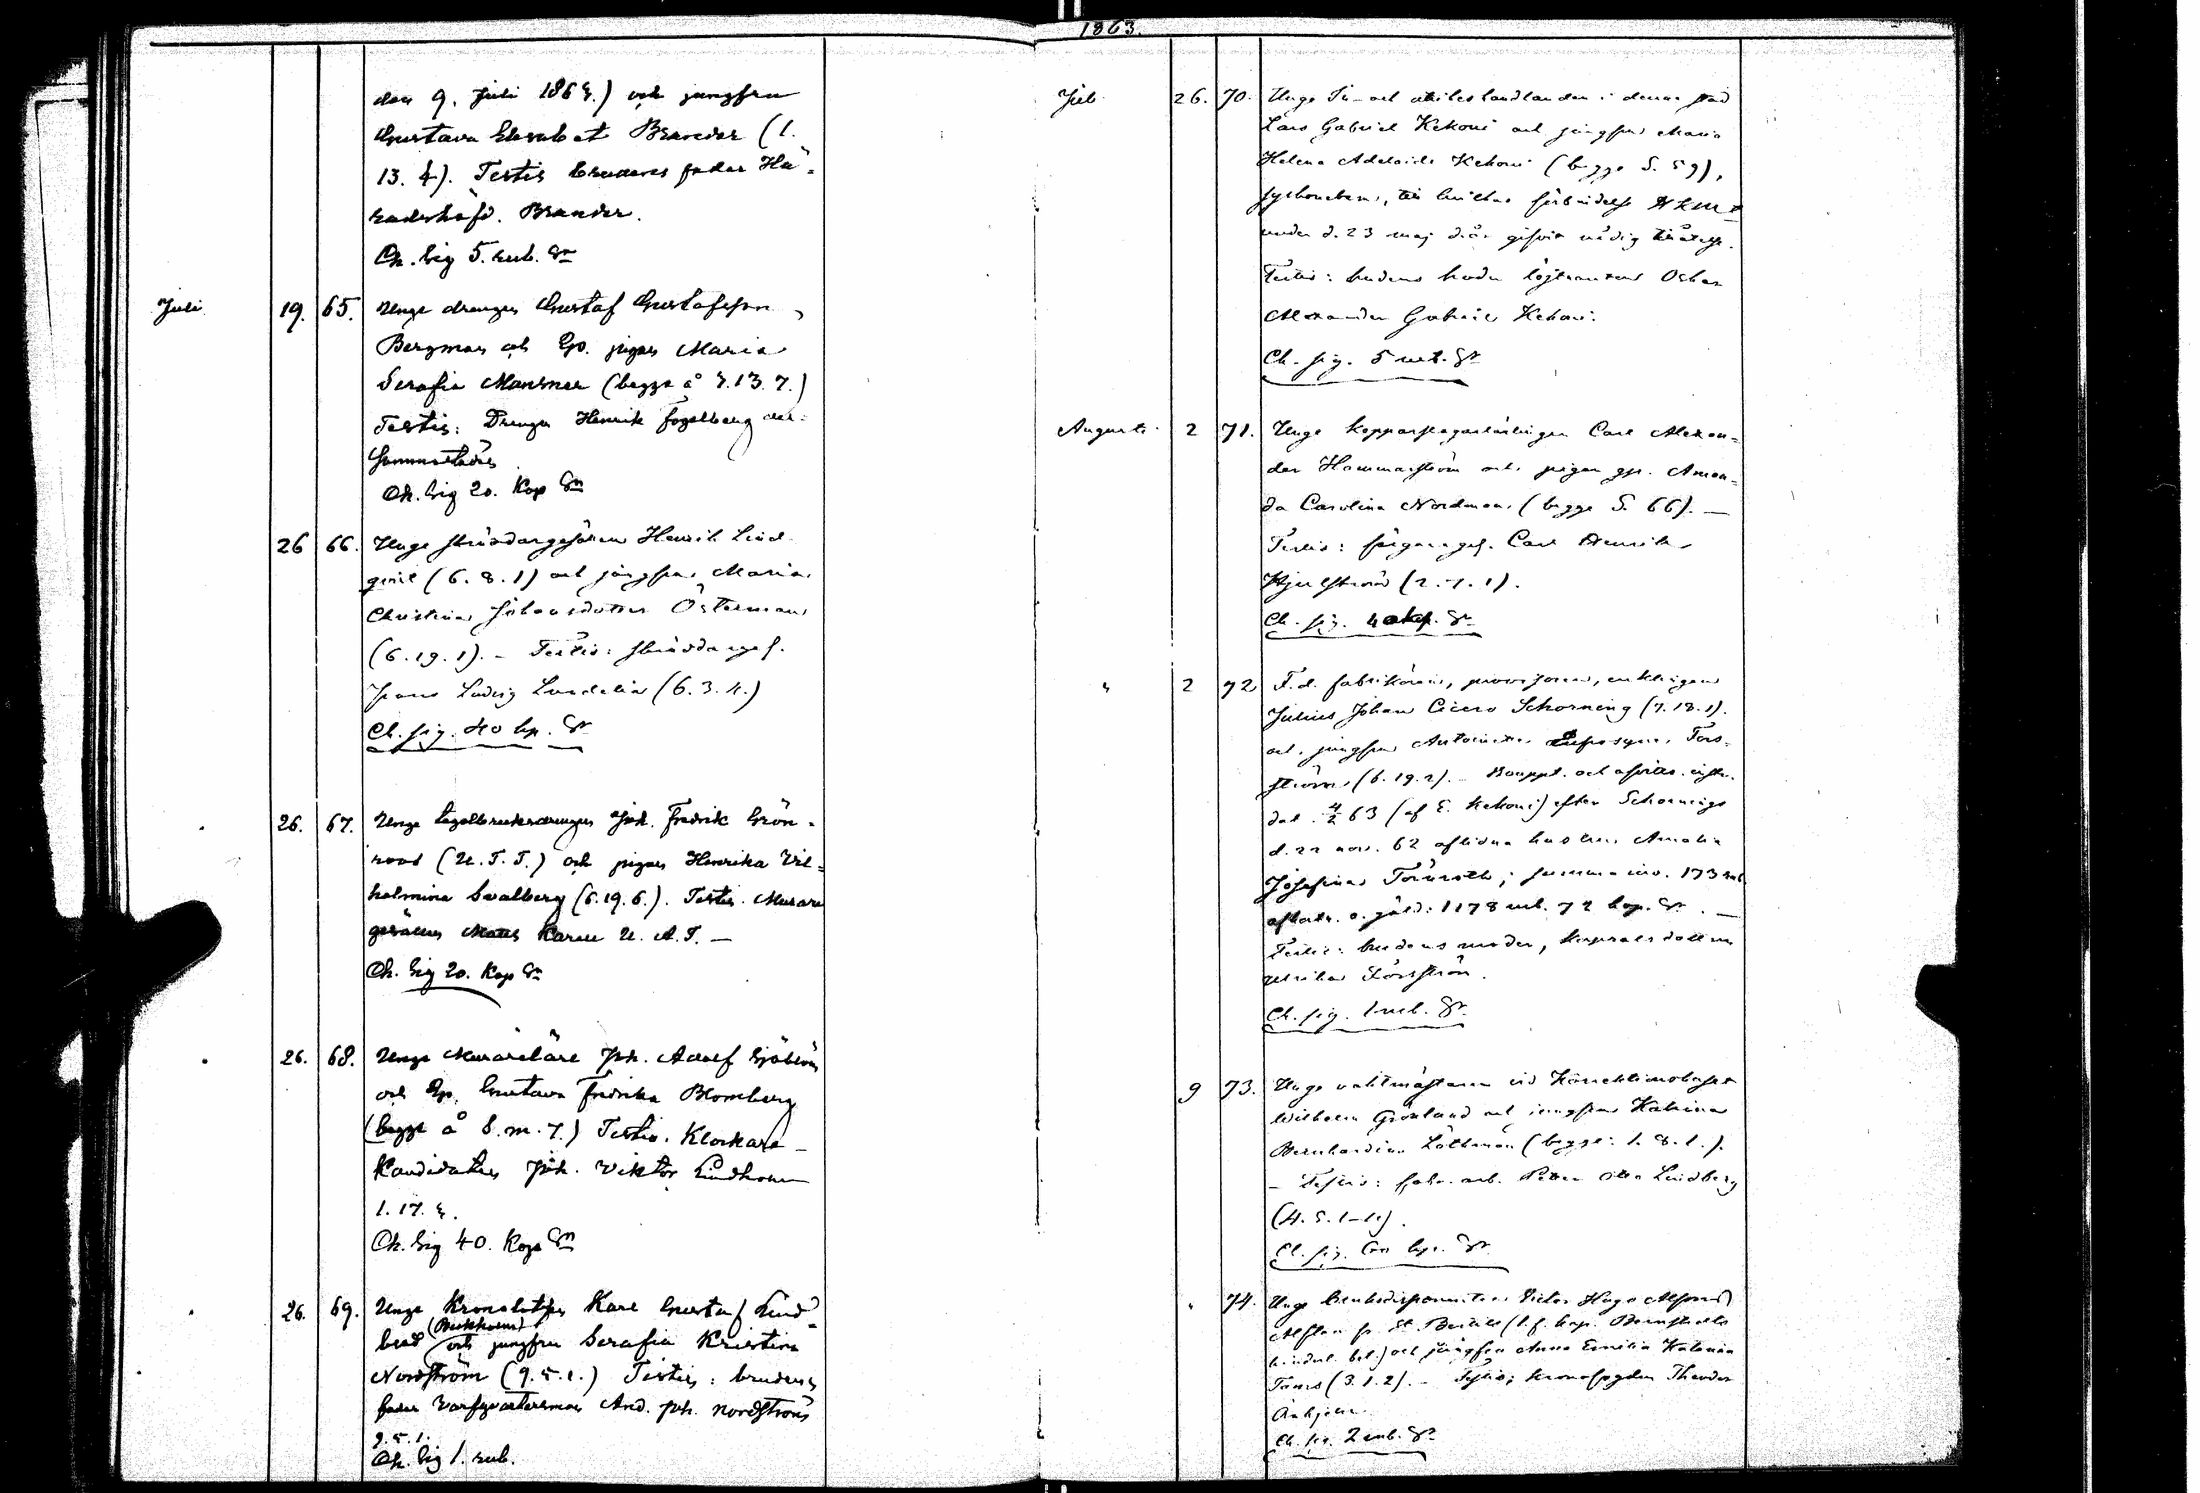 1863.
den 9. Juli 1863.) och jungfru
Gustava Elisabet Brander (1.
13. 4). Testis brudens fader Hä-
radshöfd. Brander.
Ch. sig 5. rub. Sr
Juli 19. 65. Unge drengen Gustaf Gustafsson
Bergman och Gp. pigan Maria
Serafia Mansner (begge å 3.13.7.)
Testis: Drengen Henrik Fogelberg der-
sammastädes
Ch. sig 20. Kop Sr
26 66. Unge skräddargesällen Henrik Lind-
qvist (6.8.1) och jungfru Maria
Christina Johansdotter Österman
(6.19.1). – Testis: skräddareges.
Frans Ludvig Lundelin (6.3.4.)
Ch. sig. 40 kp. Sr
26. 67. Unge tegelbruksdrengen Joh. Fredrik Grön-
roos (U.T.T.) och pigan Henrika Vil-
helmina Svalberg (6.19.6.). Testis. Murare
gesällen Matts Karen U. A. T. –
Ch. sig 20. Kop Sr
26. 68. Unge Murarelärl. Joh. Adolf Sjöblom
och Gp. Gustava Fredrika Blomberg
(begge å S.m.7.) Testis. Klockare-
Kandidaten Joh. Viktor Lindholm
1.17.3.
Ch. sig 40. Kop Sr
26. 69. Unge Kronolotsen Karl Gustaf Lind-
blad (Beckholm) och jungfru Serafia Kristina
Nordström (9.5.1.) Testis: brudens
fader Varfsqvartersman And. Joh. Nordström
9.5.1.
Ch. sig 1. rub.
Juli 26. 70. Unge Tu- och handlanden i denna stad
Lars Gabriel Kekoni och jungfru Maria
Helena Adelaide Kekoni (begge S. 59),
syskonebarn, till hvilkas förbindelse HKM:t
under d. 23 maj d.år gifvit nådig tillåtelse.
Testis: brudens broder löjtnanten Oskar
Alexander Gabriel Kekoni.
Ch. sig. 5 rub. Sr
Augusti 2 71. Unge kopparslagarlärlingen Carl Alexan-
der Hammarström och pigan gp. Aman-
da Carolina Nordman (begge S. 66). –
Testis: färgareges. Carl Henrik
Hjulström (2.7.1).
Ch. sig. 40 kop. Sr
" 2 72 F.d. fabrikören, provisoren, enklingen
Julius Johan Cicero Schorning (7.18.1).
och jungfru Antoinetta Eufrosyne Tors-
ström (6.19.2). – Bouppt. och afvittr. instr.
dat. 4/2 63 (af E. Kekoni) efter Schornings
d. 22 nov. 62 aflidna hustru Amalia
Josefina Törnroth; summa inv. 173 rub.
afkortn. o. gäld: 1178 rub. 72 kop. Sr. –
Testis: brudens moder, kapralsdottren
Ulrika Torsström.
Ch. sig. 1 rub. Sr.
9 73. Unge vaktmästaren vid Korrektionshuset
Wilhelm Grönland och jungfru Katrina
Bernhardina Löthman (begge: 1.8.1.).
– Testis: fabr. arb. Petter Otto Lindberg
(4.5.1–1.).
Ch. sig. 60 kp. Sr.
" 74. Unge bruksdisponenten Victor Hugo Alfons
Alftan fr. St. (l.f. kap.
hinderl. bet.) och jungfru Anna Emilia Katarina
Törn (3.1.2). – Testis; kronofogden Theodor
Ankjelm.
Ch. sig. 2 rub. Sr.